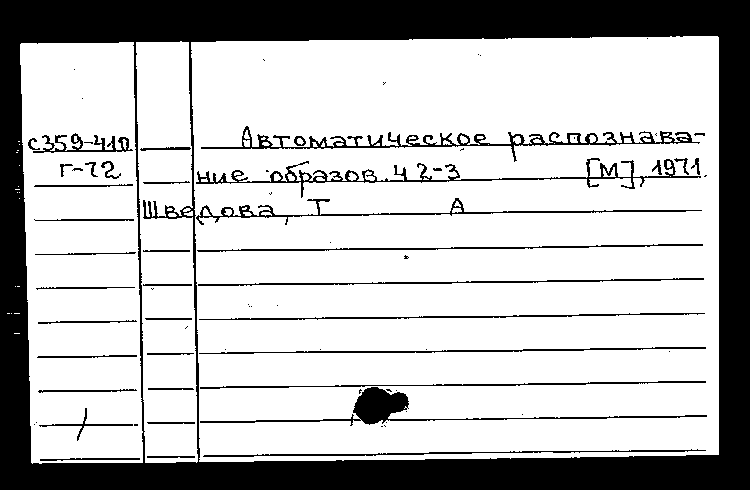 с359-410 Автоматическое распознава-
г-72 ние образов. Ч 2-3 [М], 1971.
Шведова, Т А